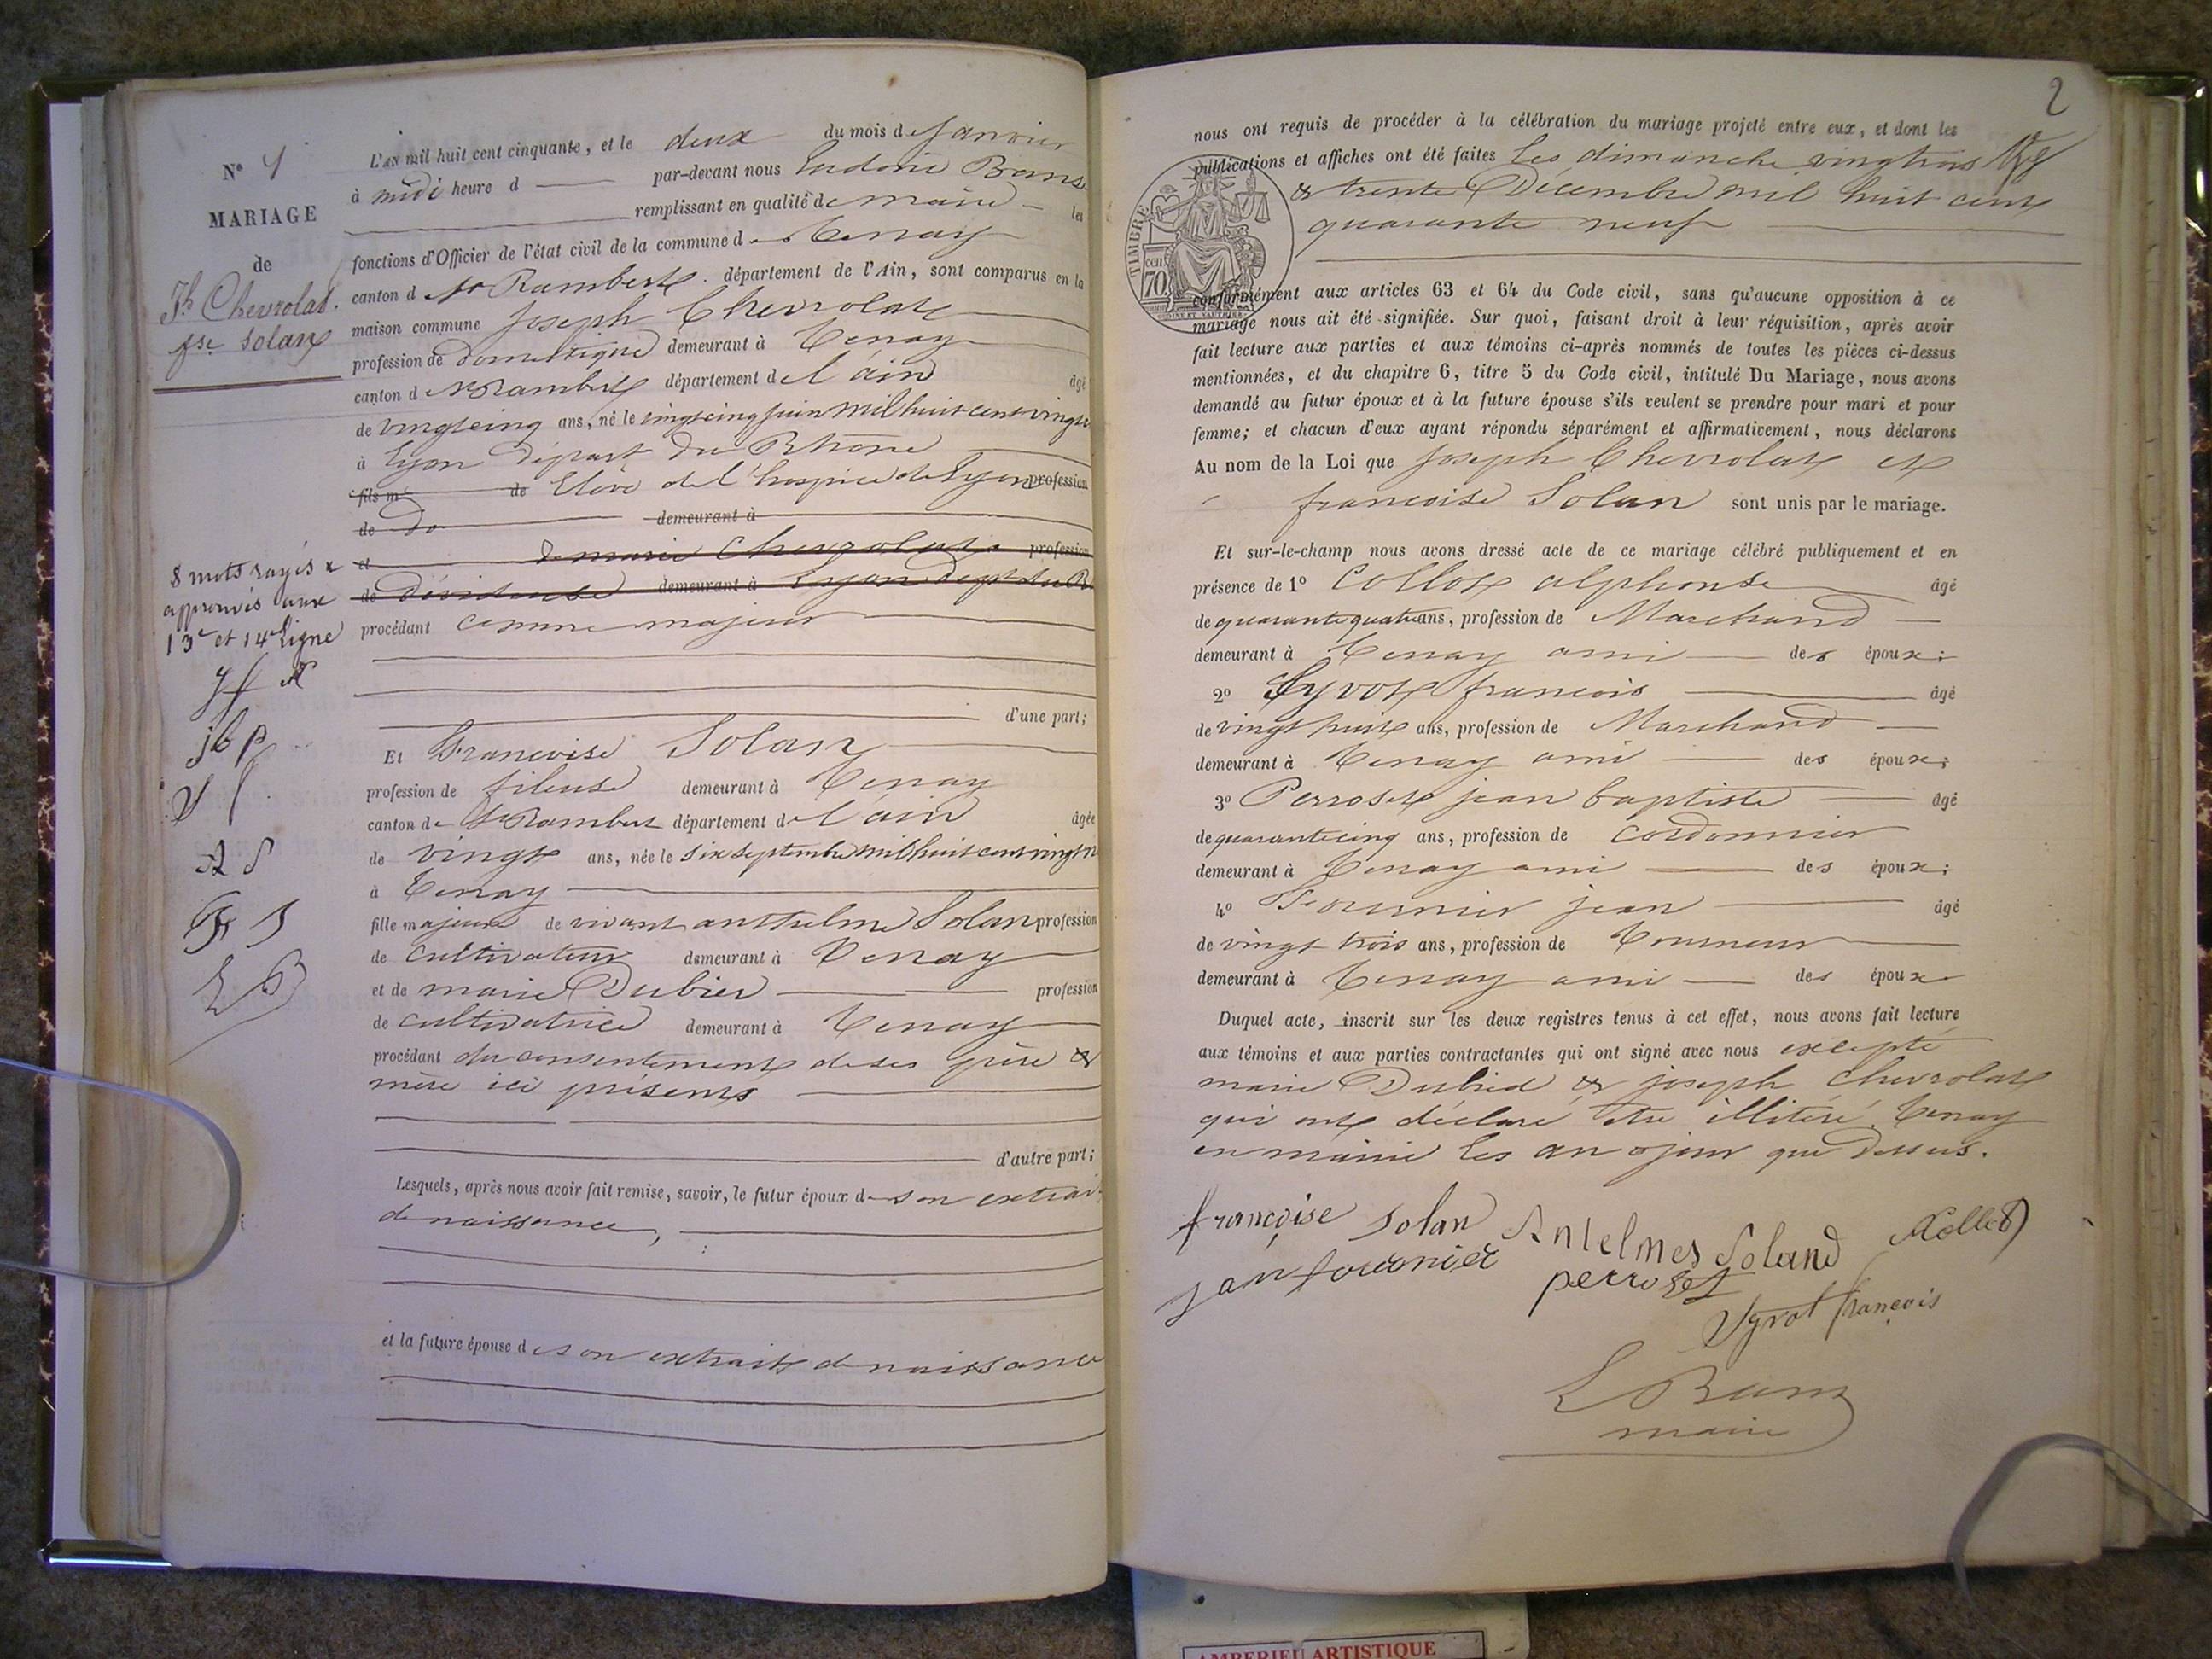 N° 1
MARIAGE
de
Jh Chevrolat.
fse Solan
8 mots rayés &
approuvés aux
13e et 14e ligne
jf
jbp
A S
F S
L B
L'an mil huit cent cinquante, et le deux du mois de janvier
à midi heure d par-devant nous Ludovic Bans
remplissant en qualité de maire les
fonctions d'Officier de l'état civil de la commune de Tenay
canton d St Rambert département de l'Ain, sont comparus en la
maison commune joseph Chevrolat
profession de domestique demeurant à Tenay
canton d St Rambert département de l'ain âgé
de vingtcinq ans, né le vingtcinq juin mil huit cent vingt
à Lyon départ du Rhône
fils m de Elève de l'hospice de Lyon profession
de do demeurant à
et de marie Chevrolat profession
de dévideuse demeurant à Lyon dept du R
procédant comme majeur
d'une part;
Et Francoise Solan
profession de fileuse demeurant à Tenay
canton de St Rambert département de l'ain âgée
de vingt ans, née le six septembre mil huit cent vingt n
à Tenay
fille majeure de vivant anthelme Solan profession
de cultivateur demeurant à Tenay
et de marie Dubier profession
de cultivatrice demeurant à Tenay
procédant du consentement de ses père &
mère ici présents
d'autre part;
Lesquels, après nous avoir fait remise, savoir, le futur époux de son extrait
de naissance,
et la future épouse de son extrait de naissance
2
nous ont requis de procéder à la célébration du mariage projeté entre eux, et dont les
publications et affiches ont été faites les dimanche vingttrois
& trente Décembre mil huit cent
quarante neuf
TIMBRE
cen
70
conformément aux articles 63 et 64 du Code civil, sans qu'aucune opposition à ce
mariage nous ait été signifiée. Sur quoi, faisant droit à leur réquisition, après avoir
fait lecture aux parties et aux témoins ci-après nommés de toutes les pièces ci-dessus
mentionnées, et du chapitre 6, titre 5 du Code civil, intitulé Du Mariage, nous avons
demandé au futur époux et à la future épouse s'ils veulent se prendre pour mari et pour
femme; et chacun d'eux ayant répondu séparément et affirmativement, nous déclarons
Au nom de la Loi que joseph Chevrolat et
francoise Solan sont unis par le mariage.
Et sur-le-champ nous avons dressé acte de ce mariage célébré publiquement et en
présence de 1° Collot alphonse âgé
de quarantequatre ans, profession de Marchand
demeurant à Tenay ami des époux;
2° Syvot francois âgé
de vingt huit ans, profession de Marchand
demeurant à Tenay ami des époux;
3° Perroset jean baptiste âgé
de quarantecinq ans, profession de cordonnier
demeurant à Tenay ami des époux;
4° Fournier jean âgé
de vingt trois ans, profession de Tourneur
demeurant à Tenay ami des époux
Duquel acte, inscrit sur les deux registres tenus à cet effet, nous avons fait lecture
aux témoins et aux parties contractantes qui ont signé avec nous excepté
marie Dubied & joseph Chevrolat
qui ont déclaré être illitéré. Tenay
en mairie les an & jour que dessus.
françoise solan Antelmes Soland Collot
jan fournier perroset
Syvot françois
L Bans
maire
AMBERIEU ARTISTIQUE